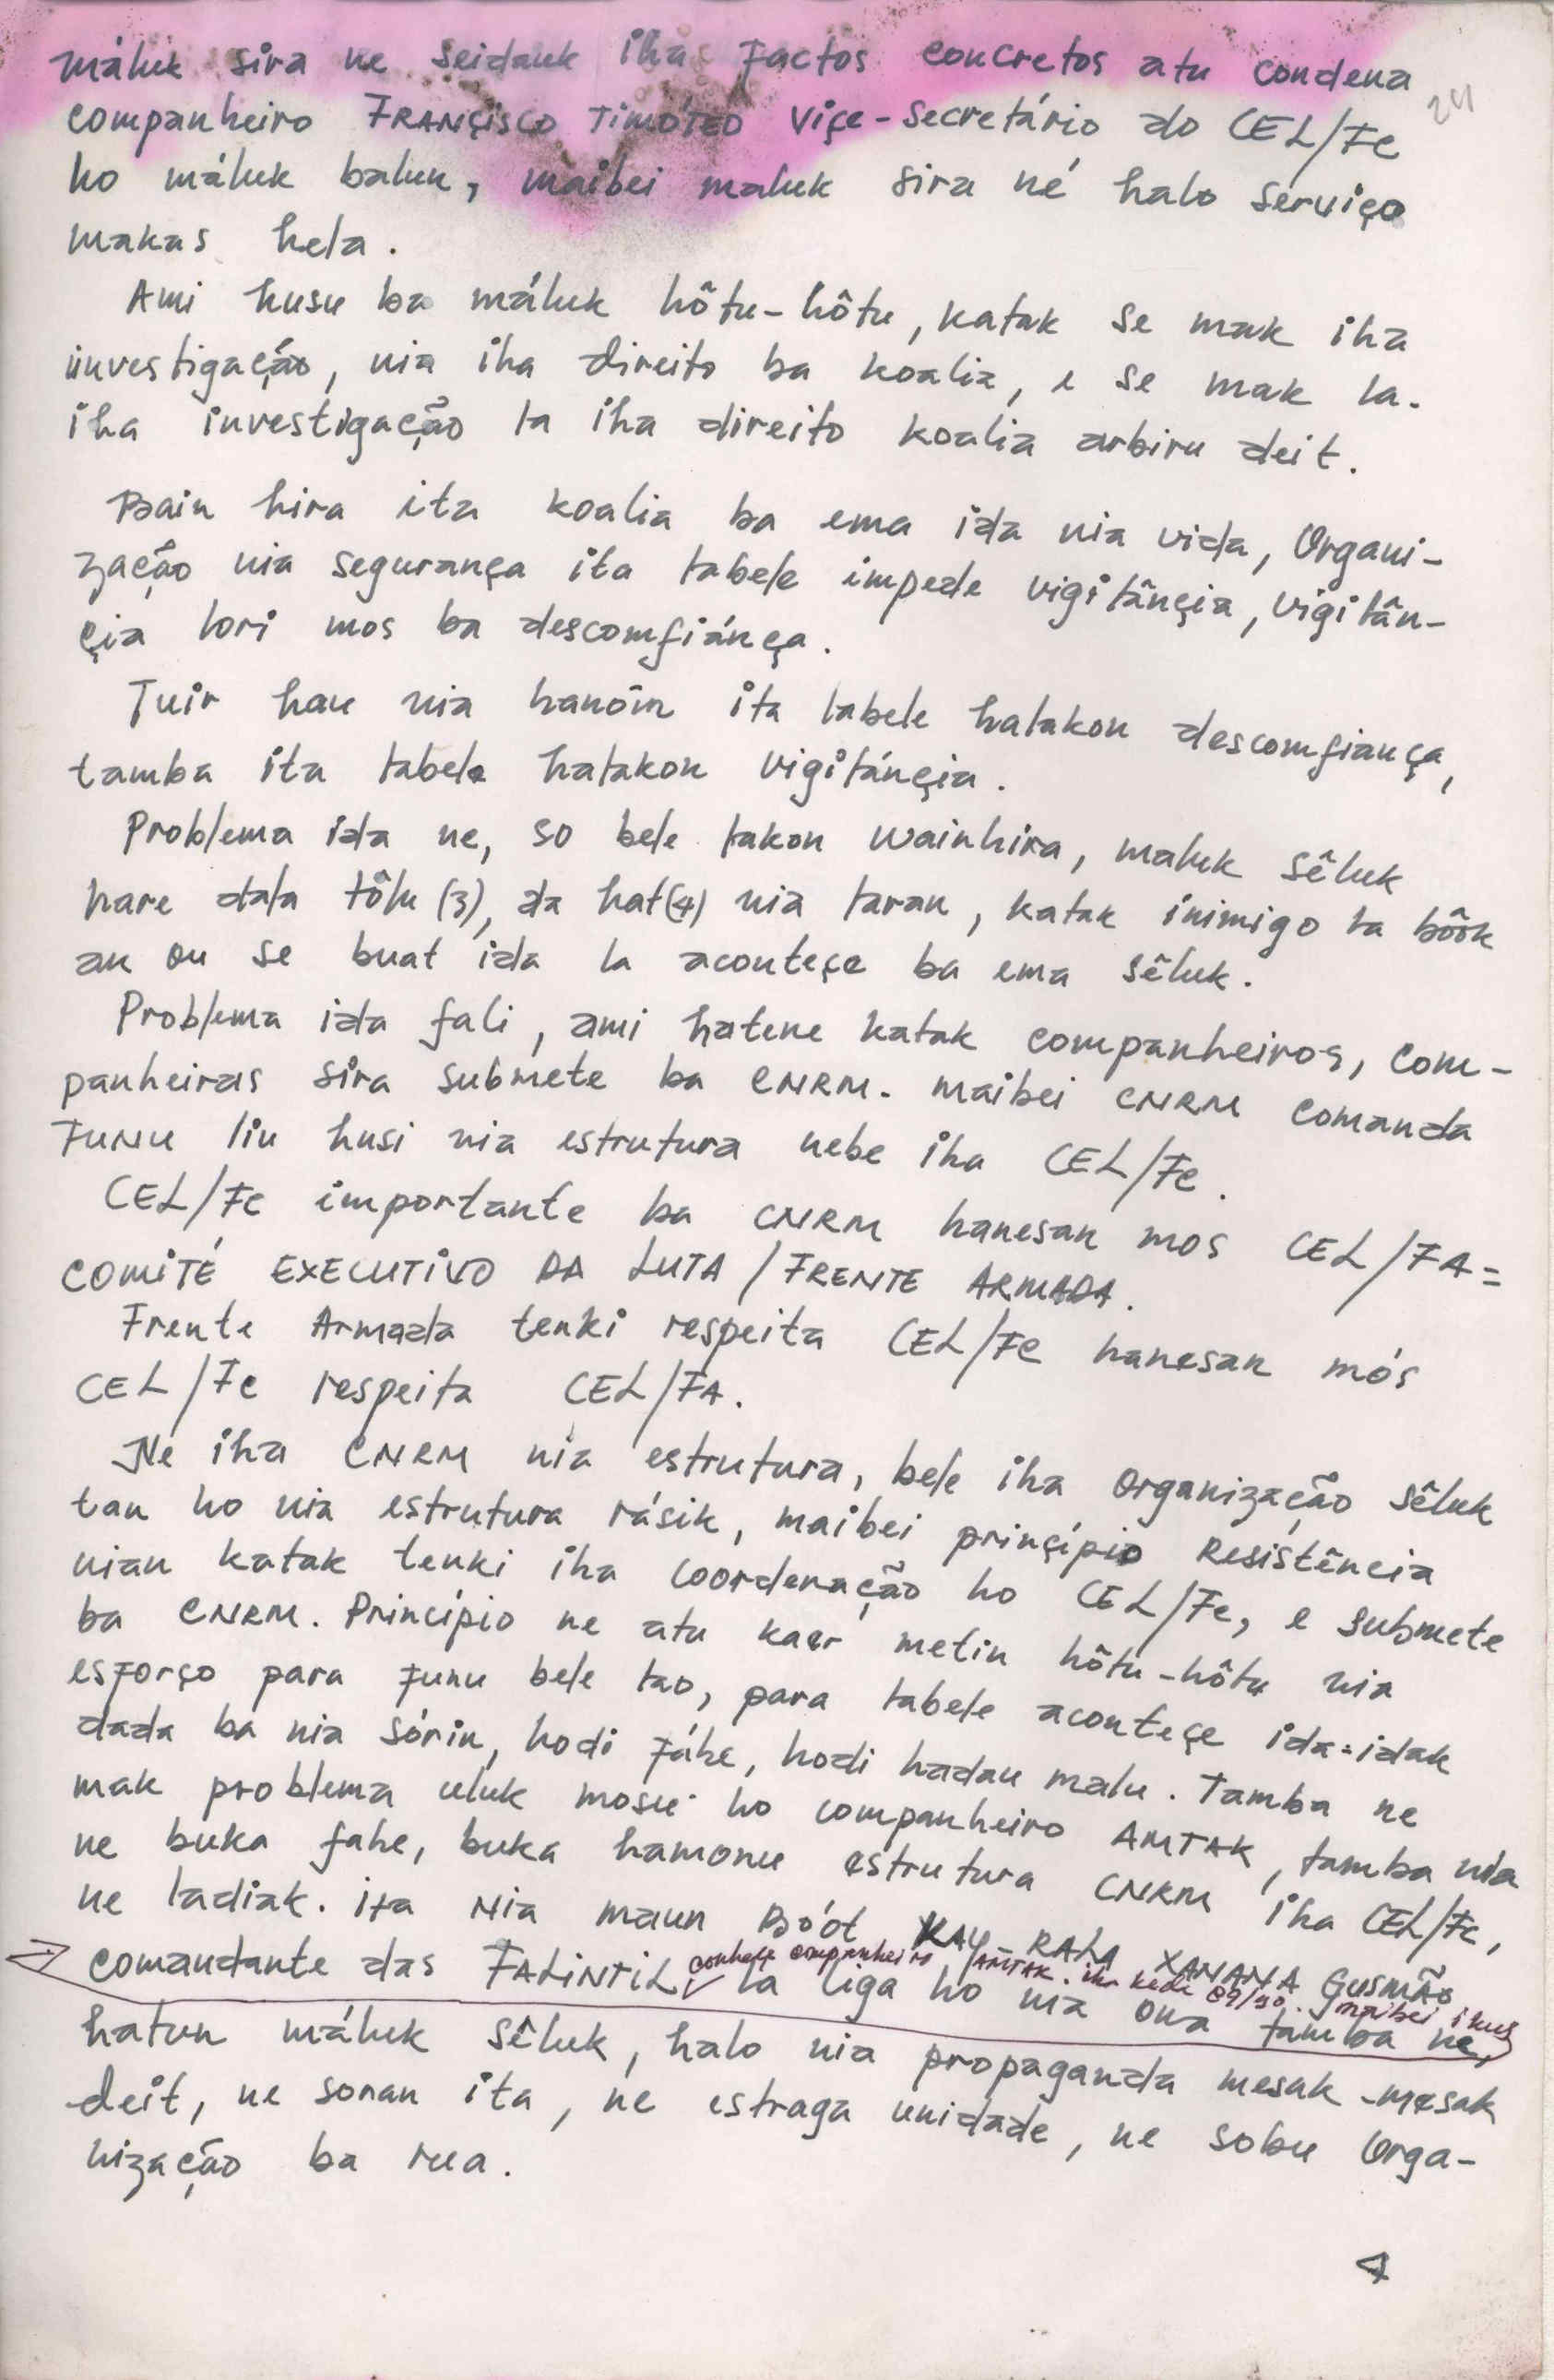 máluk sira ne seidauk iha factos concretos atu condena
24
companheiro FRANÇISCO TIMÓTEO Viçe-Secretário do CEL/FC
ho máluk balun, maibei maluk sira né halo serviço
makas hela.
Ami husu ba máluk hôtu-hôtu, katak se mak iha
investigação, nia iha direito ba koalia, e se mak la-
iha investigação la iha direito koalia arbiru deit.
Bain hira ita koalia ba ema ida nia vida, Organi-
zação nia segurança ita labele impede vigilânçia, vigilân-
çia lori mos ba descomfiánça.
Tuir hau nia hanôin ita labele halakon descomfiança,
tamba ita labele halakon vigilánçia.
Problema ida ne, so bele lakon wainhira, maluk sêluk
hare dala tôlu (3), da hat(4) nia laran, katak inimigo la bôok
an ou se buat ida la aconteçe ba ema sêluk.
Problema ida fali, ami hatene katak companheiros, com-
panheiras sira submete ba CNRM. maibei CNRM comanda
FUNU liu husi nia estrutura nebe iha CEL/FC.
CEL/FC importante ba CNRM hanesan mos CEL/FA=
COMITÉ EXECUTIVO DA LUTA/FRENTE ARMADA.
Frente Armada tenki respeita CEL/FC hanesan mós
CEL/FC respeita CEL/FA.
Né iha CNRM nia estrutura, bele iha Organização sêluk
tan ho nia estrutura rásik, maibei prinçípio Resistência
nian katak tenki iha Coordenação ho CEL/FC, e submete
ba CNRM. Princípio ne atu kaer metin hôtu-hôtu nia
esforço para funu bele tao, para labele aconteçe ida-idak
dada ba nia sórin, hodi fáhe, hodi hadau malu. Tamba ne
mak problema uluk mosu ho companheiro AMTAK, tamba nia
ne buka fahe, buka hamonu estrutura CNRM iha CEL/FC,
ne ladiak. ita Nia maun Bo'ot KAY-RALA XANANA GUSMÃO
conhese companheiro AMTAK. iha kedi 89/90. maibei ikus
comandante das FALINTIL la liga ho nia ona tamba ne,
hatun máluk sêluk, halo nia propaganda mesak-mesak
deit, ne sonan ita, ne estraga unidade, ne sobu Orga-
nização ba rua.
4